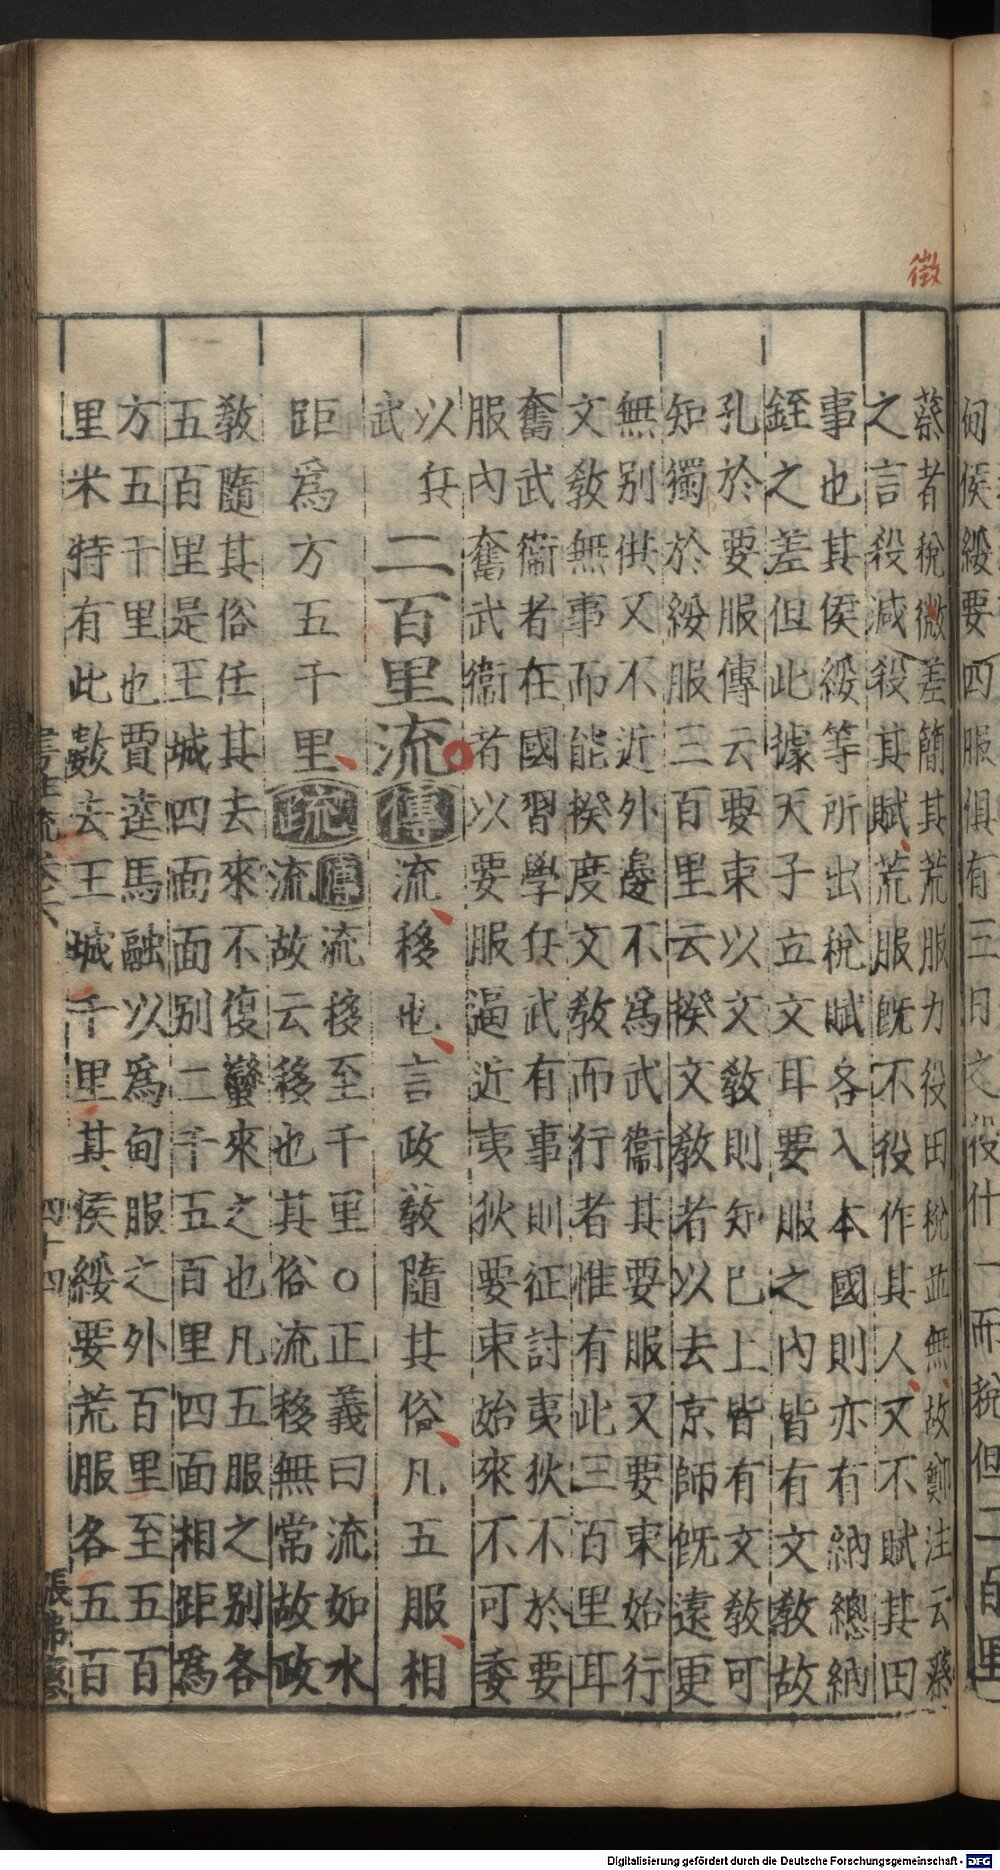 甸侯綏要四服俱有三日之役什一而稅但二百里
徵
蔡者稅微差簡其荒服力役田稅並無故鄭注云蔡
之言殺減殺其賦荒服旣不役作其人又不賦其田
事也其侯綏等所出稅賦各入本國則亦有納總納
銍之差但此據天子立文耳要服之內皆有文敎故
孔於要服傳云要束以文敎則知已上皆有文敎可
知獨於綏服三百里云揆文敎者以去京師旣遠更
無別供又不近外邊不爲武衞其要服又要束始行
文敎無事而能揆度文敎而行者惟有此三百里耳
奮武衞者在國習學兵武有事則征討夷狄不於要
服內奮武衞者以要服逼近夷狄要束始來不可委
以兵
武
二百里流傳流移也言政敎隨其俗凡五服相
距爲方五千里疏
傳流移至千里○正義曰流如水
流故云移也其俗流移無常故政
敎隨其俗任其去來不復蠻來之也凡五服之別各
五百里是王城四面面別二千五百里四面相距爲
方五千里也賈逵馬融以爲甸服之外百里至五百
里米特有此數去王城千里其侯綏要荒服各五百
疏卷六
四十四
Digitalisierung gefördert durch die Deutsche Forschungsgemeinschaft - DFG